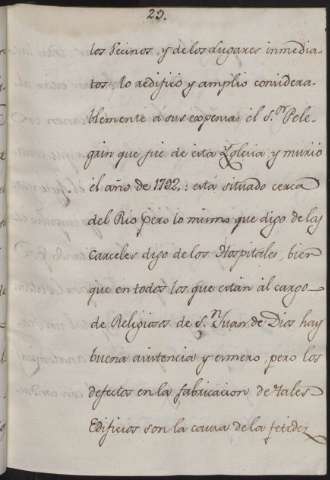 29.
los Vecinos, y de los Lugares inmedia-
tos, lo redificó y amplio considera-
blemente á sus expensas el S.or Pele-
grin que fue de esta Yglesia, y murió
el año de 1722,: está situado cerca
del Rio pero lo mismo que digo de las
Carceles digo de los Hospitales, bien
que en todos los que están al cargo
de Religiosos de S.n Juan de Dios hay
buena asistencia y esmero, pero los
defectos en la fabricacion de tales
Edificios son la causa de la fetidez